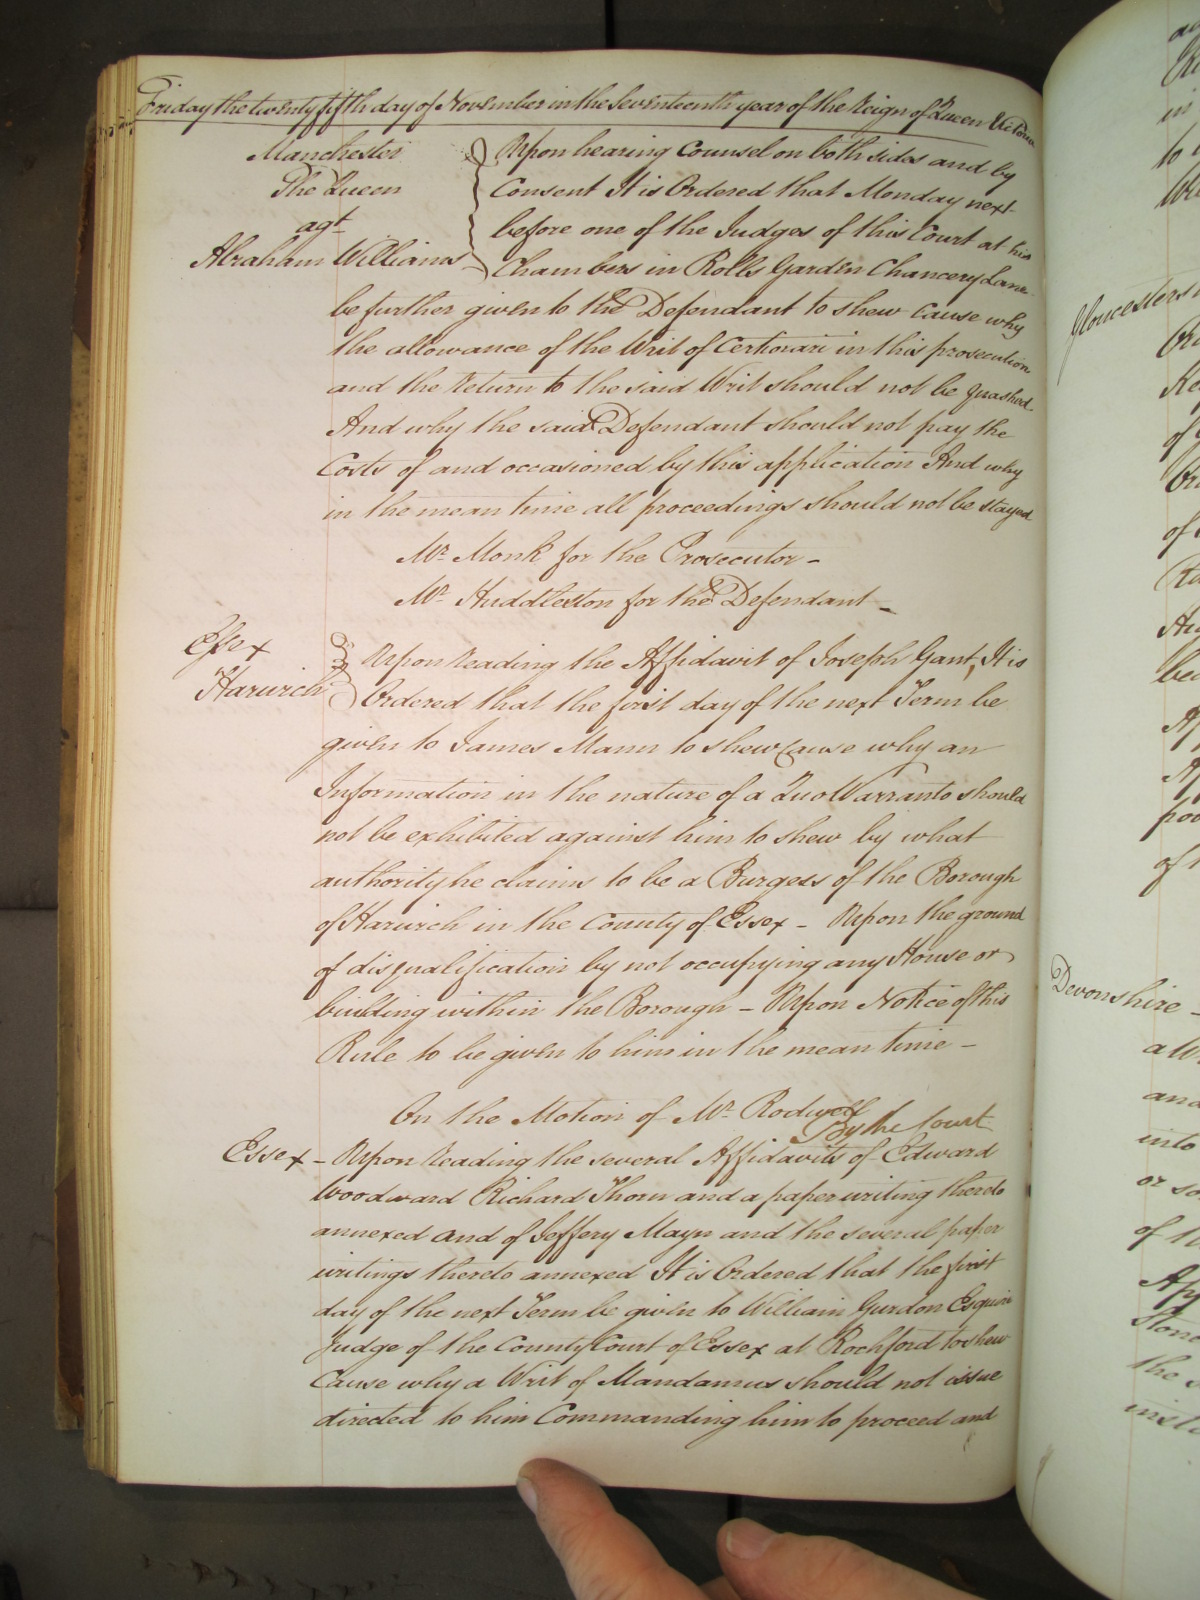 Friday the twenty fifth day of November in the Seventeenth year of the Reign of Queen Victoria
Manchester
The Queen
agt
Abraham Williams
Upon hearing Counsel on both sides and by
Consent It is Ordered that Monday next
before one of the Judges of this Court at his
Chambers in Rolls Garden Chancery Lane
be further given to the Defendant to shew cause why
the allowance of the Writ of Certiorari in this prosecution
and the Return to the said Writ should not be quashed.
And why the said Defendant should not pay the
Costs of and occasioned by this application And why
in the mean time all proceedings should not be stayed
Mr. Monk for the Prosecutor -
Mr. Huddleston for the Defendant -
Essex
Harwich
Upon reading the Affidavit of Joseph Gant, It is
Ordered that the first day of the next Term be
given to James Mann to shew Cause why an
Information in the nature of a Quo Warranto should
not be exhibited against him to shew by what
authority he claims to be a Burgess of the Borough
of Harwich in the County of Essex - Upon the ground
of disqualification by not occupying any House or
building within the Borough - Upon Notice of this
Rule to be given to him in the mean time -
On the Motion of Mr. Rodwell
By the Court
Essex - Upon reading the several Affidavits of Edward
Woodward Richard Thorn and a paper writing thereto
annexed and of Jeffery Mayn and the several paper
writings thereto annexed It is Ordered that the first
day of the next Term be given to William Gurdon Esquire
Judge of the County Court of Essex at Rochford to shew
Cause why a Writ of Mandamus should not issue
directed to him Commanding him to proceed and
Devonshire -